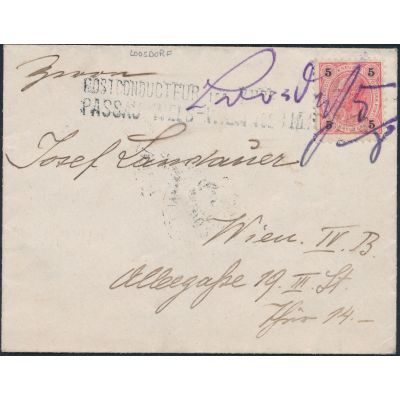 LOOSDORF
Herrn
POSTCONDUCTEUR IM ZUGE
PASSAU-WELS-WIEN
Loosdorf 5
5 5
5 5
Josef Landauer
Wien. IV. B.
Alleegaße 19. III. St.
Thür 14.–